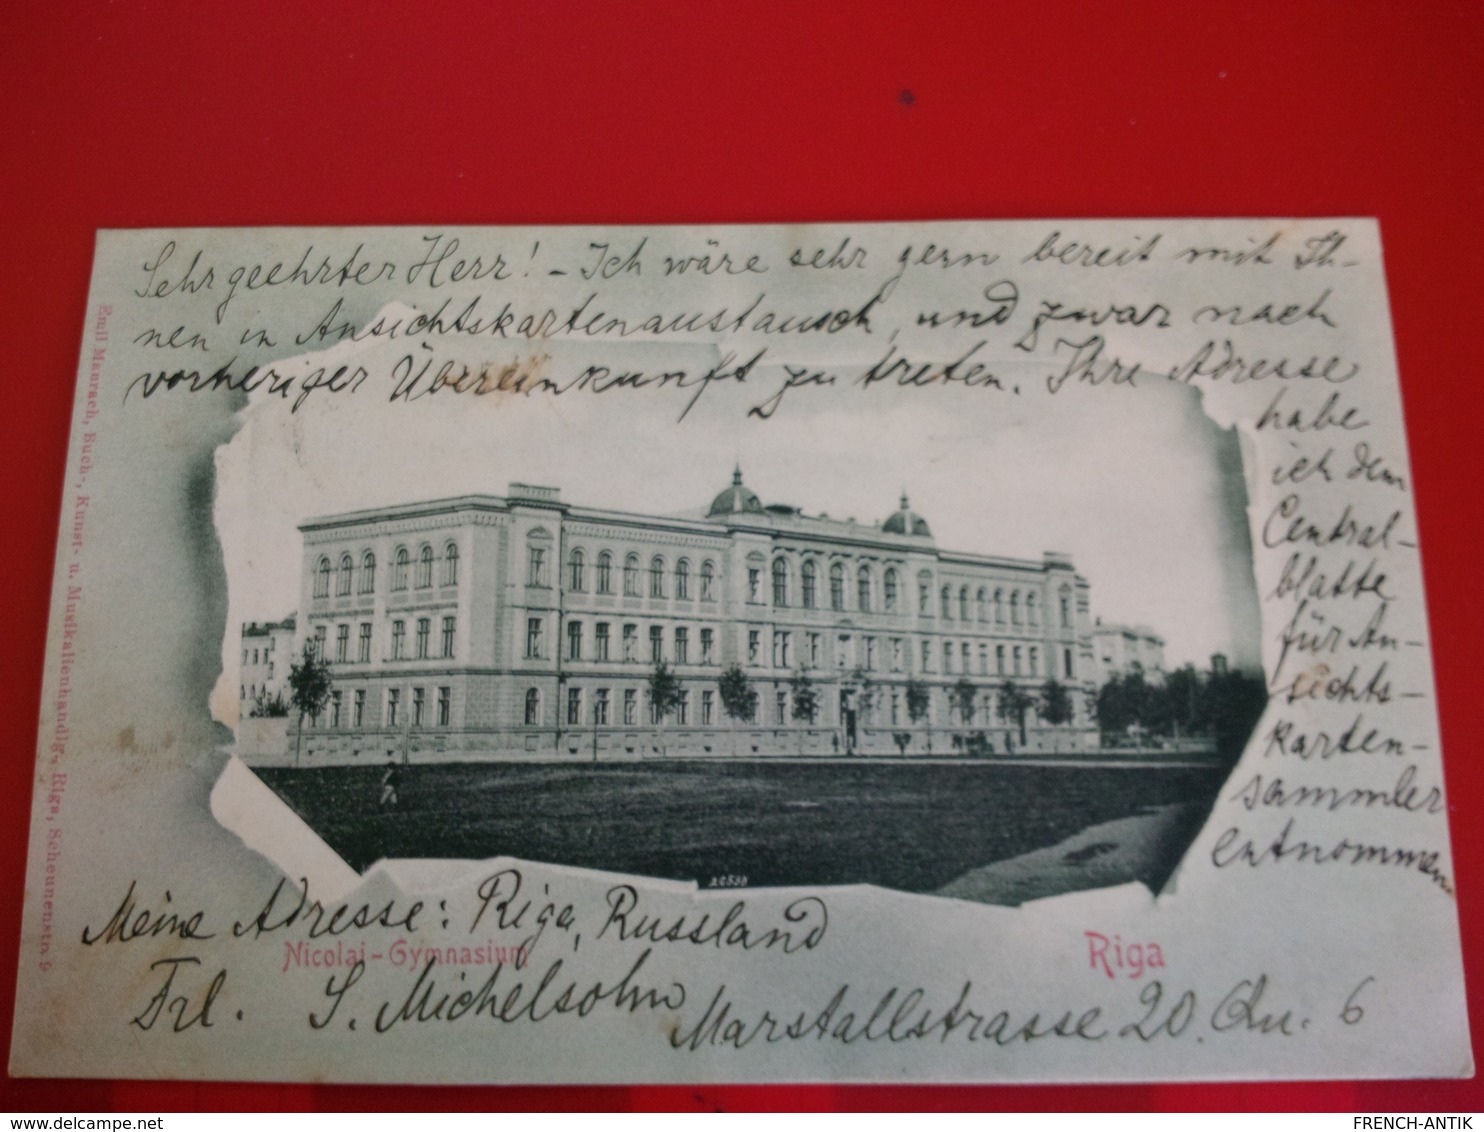 Sehr geehrter Herr! – Ich wäre sehr gern bereit mit Ih-
nen in Ansichtskartenaustausch, und zwar nach
vorheriger Übereinkunft zu treten. Ihre Adresse
habe
ich dem
Central-
blatte
für An-
sichts-
karten-
sammler
entnommen.
Emil Maurach, Buch-, Kunst- u. Musikalienhandlg., Riga, Scheunenstr. 9
20538
Meine Adresse: Riga, Russland
Nicolai-Gymnasium
Riga
Frl. S. Michelsohn Marstallstrasse 20. Qu. 6
delcampe.net
FRENCH-ANTIK